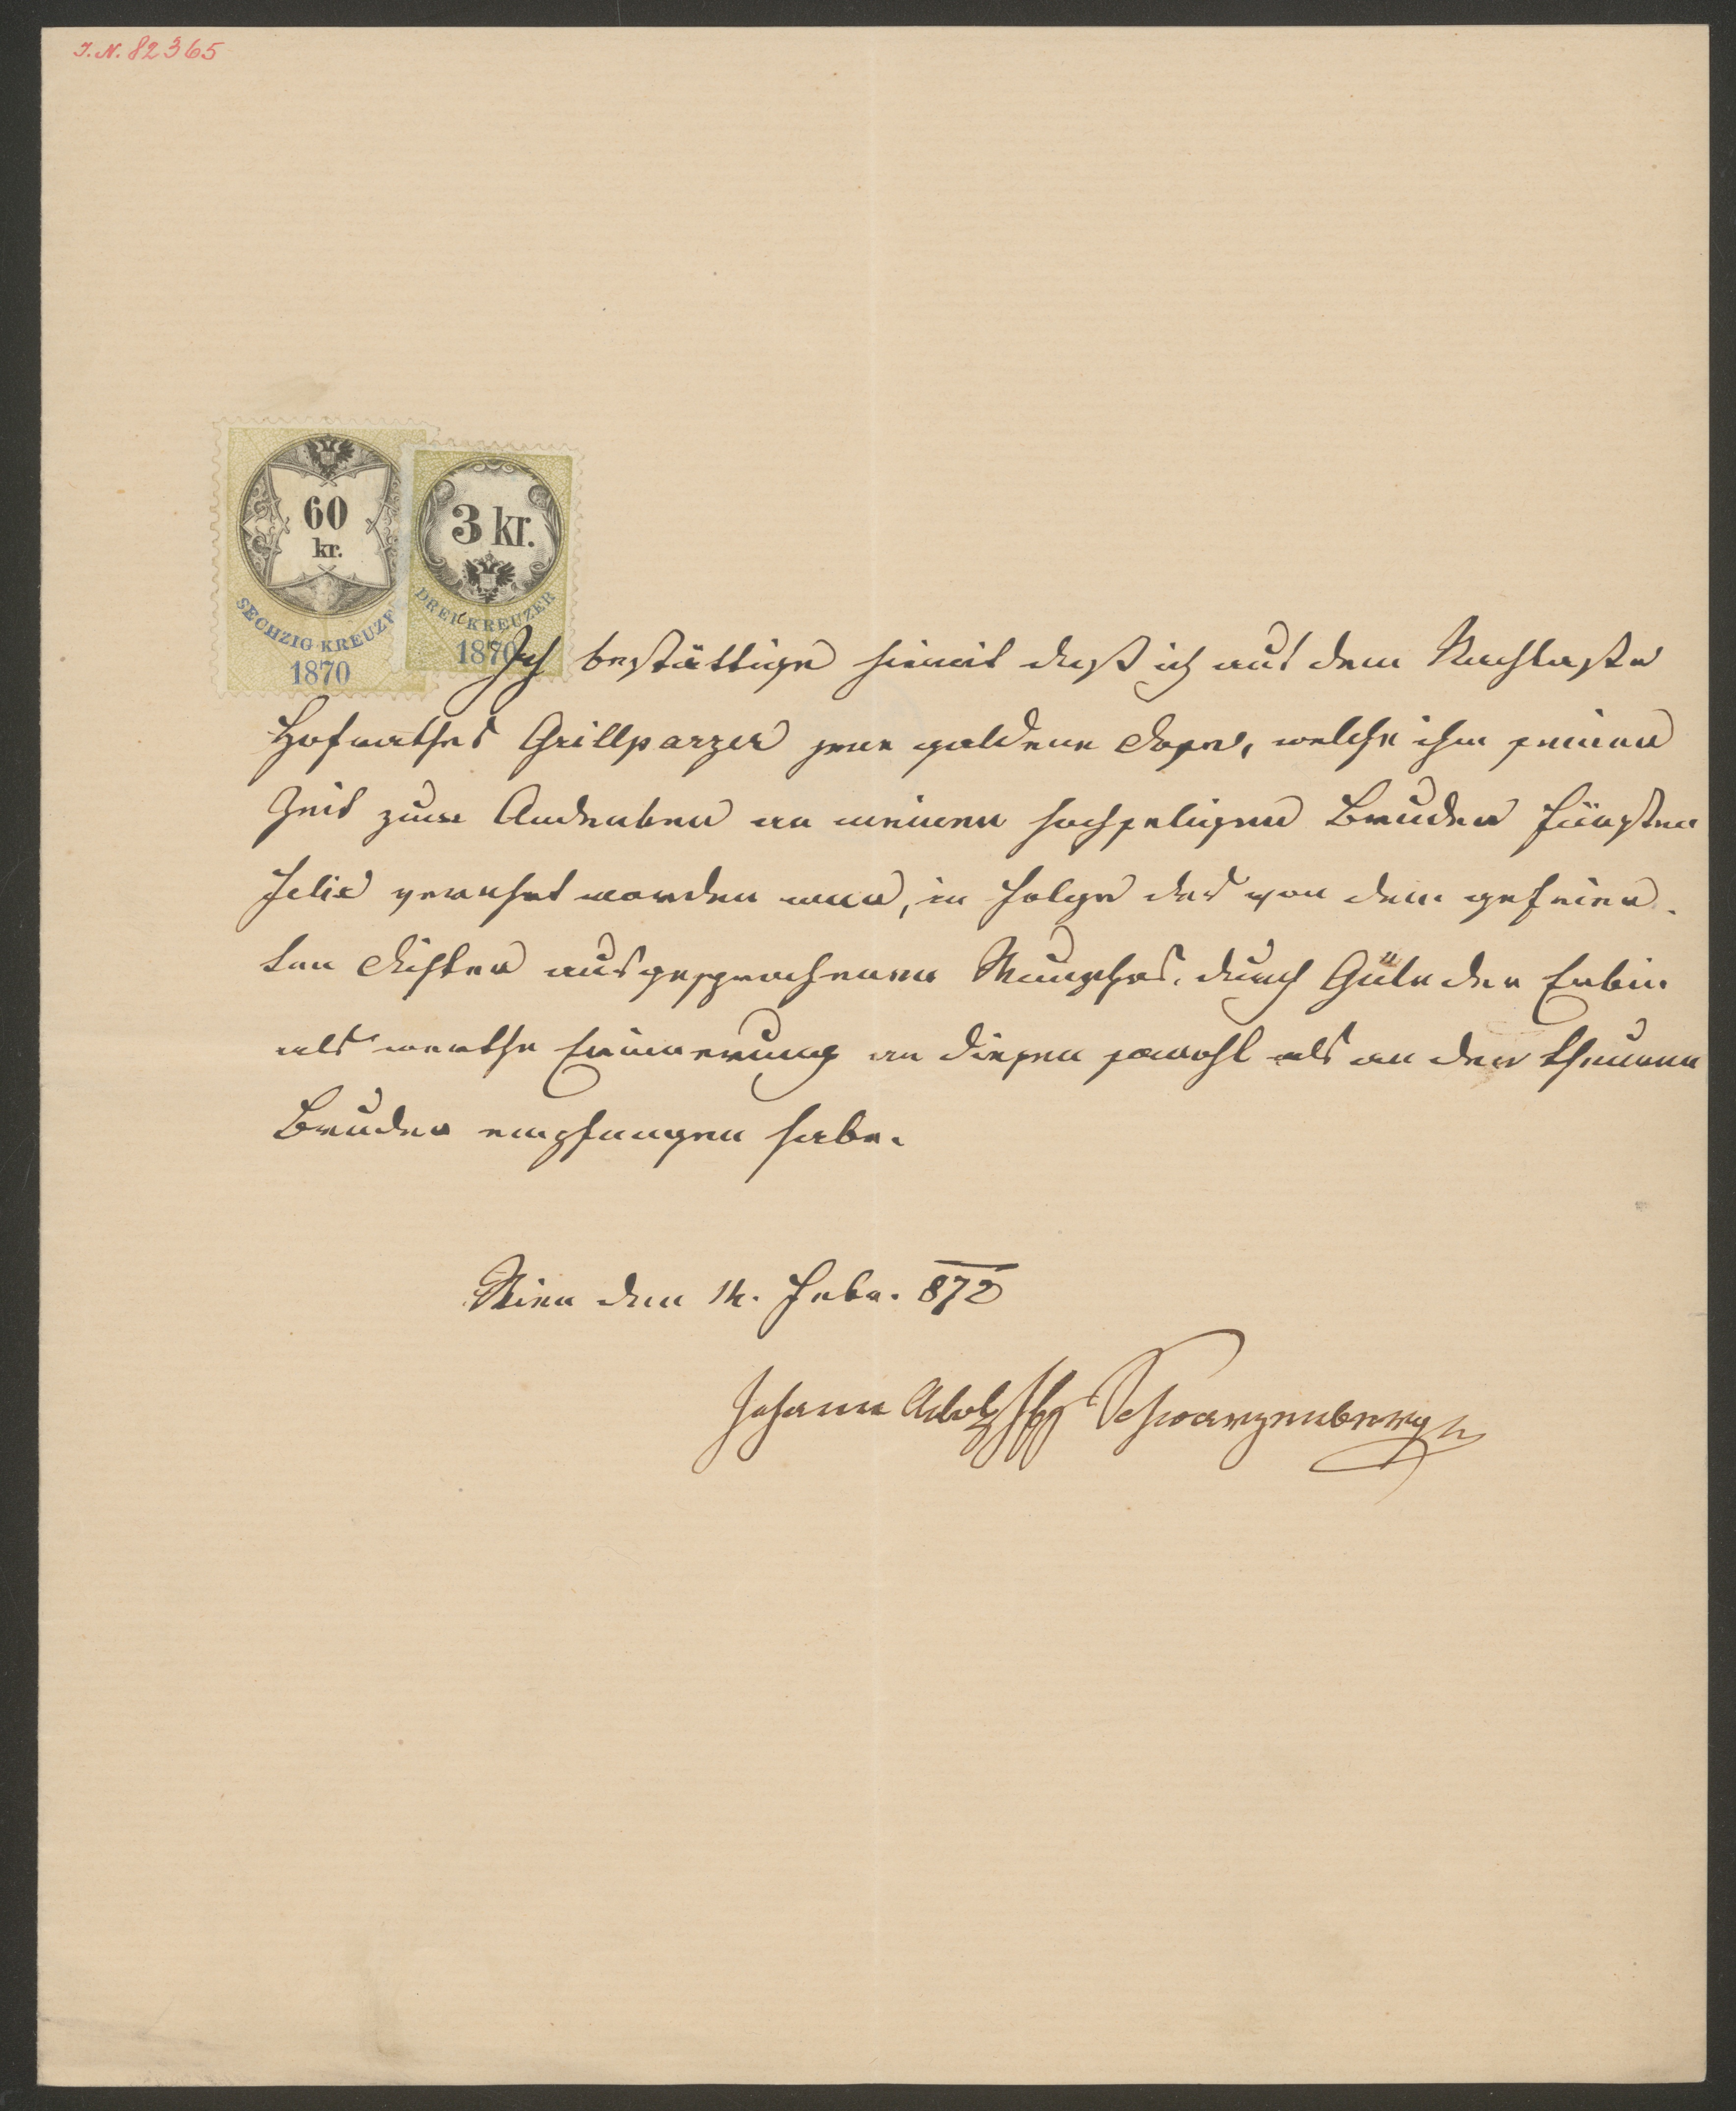 I. N. 82365
60
kr.
SECHZIG KREUZE
1870
3 kr.
DREI KREUZER
1870
Ich bestättige hiemit daß ich aus dem Nachlaße
Hofrathes Grillparzer jene goldene Dose, welche ihm seiner
Zeit zum Andenken an meinen hochseligen Bruder Fürsten
Felix verehret worden war, in Folge des von dem gefeier-
ten Dichter ausgesprochenen Wunsches, durch Güte der Erbin
als werthe Erinnerung an diesen sowohl als an den theuren
Bruder empfangen habe.
Wien den 14. Febr. 872
Johann Adolf Schwarzenberg